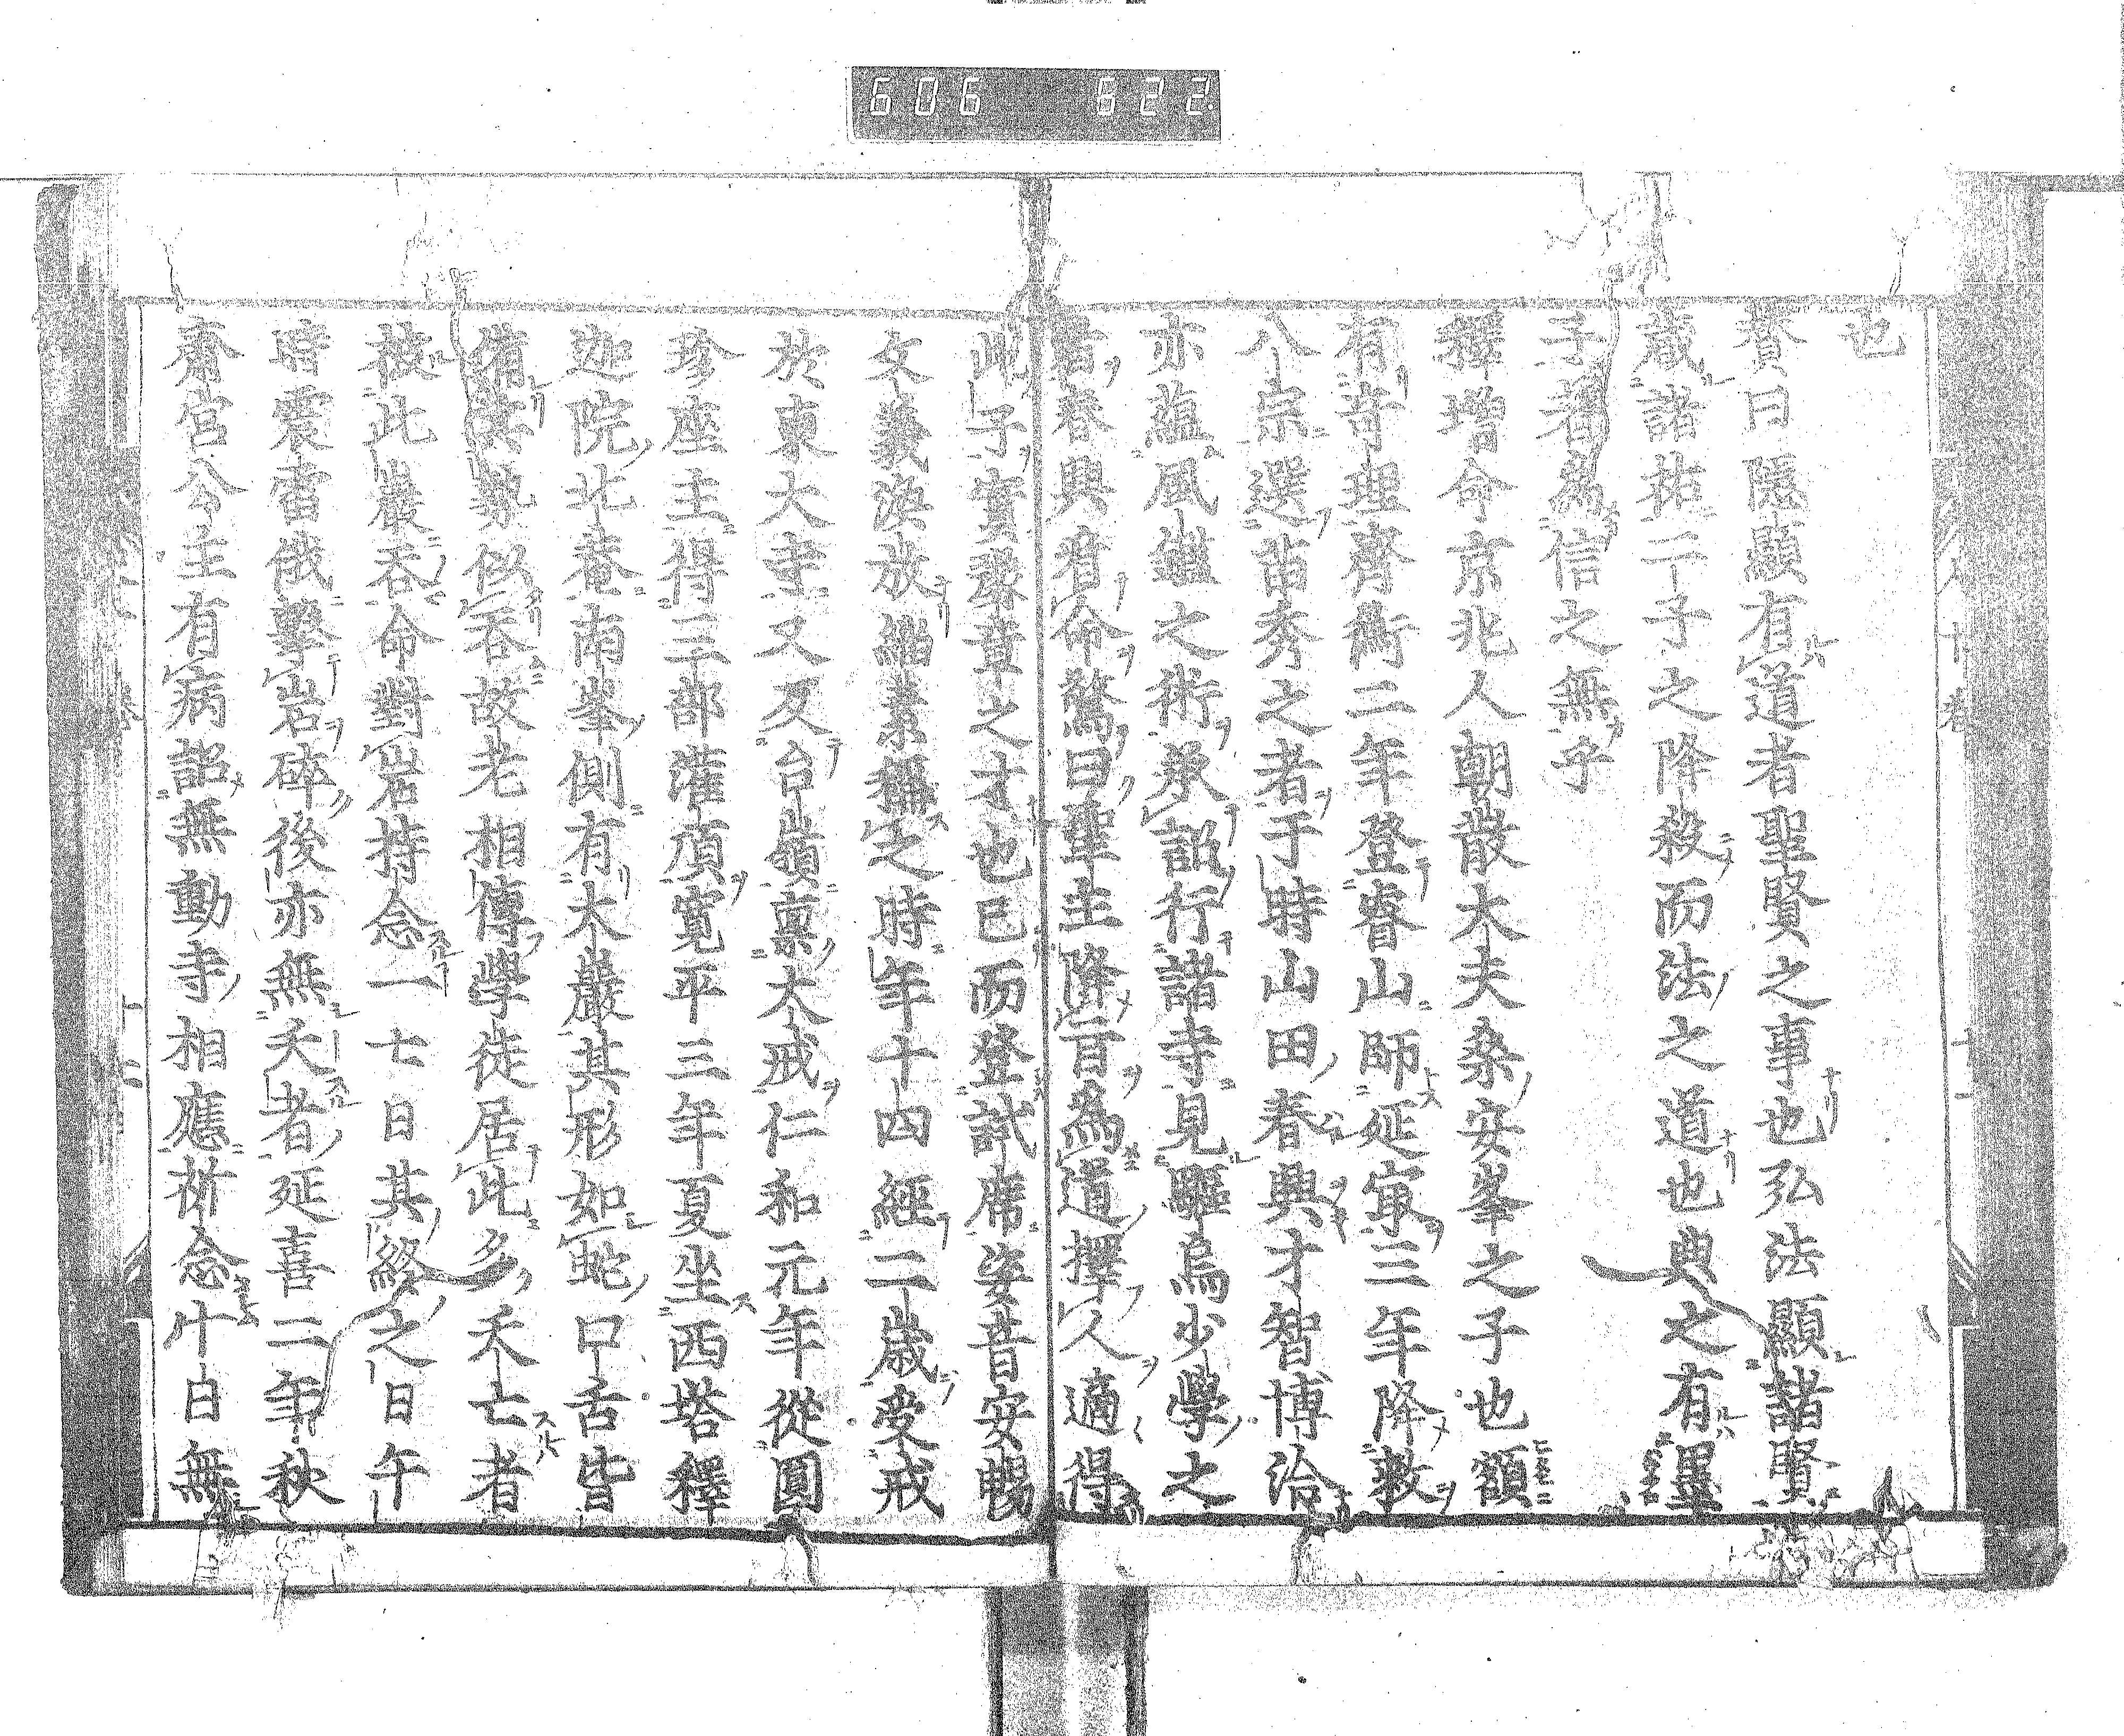 606 622
也
賛曰隱顯有道者聖賢之事也弘法顯諸賢
蔵諸拙二子之降殺而法之道也典之有墨
子者為信之無乎
釋增命京兆人朝散大夫桑安峯之子也額
有奇理齊衡二年登睿山師延冣三年降敕
八宗選苗秀之者于時山田春興才智博洽
亦蘊風鑑之術承詔行諸寺見驅烏少學之
春興看命驚曰聖主降旨為道擇人適得
此子實謬賁之才也已而登試席姿音安暢
文義渙放緇素稱之時年十四經二歲受戒
於東大寺又及台嶺稟大戒仁和元年從圓
珍座主得三部灌頂寬平三年夏坐西塔釋
迦院北菴南峯側有大巖其形如蛇口舌皆
備其勢似吞故老相傳學徒居此多夭亡者
此巖吞命對岩持念一七日其終之日午
時震雷俄擊岩碎後亦無夭者延喜二年秋
齋宮公主有病詔無動寺相應祈念十日無